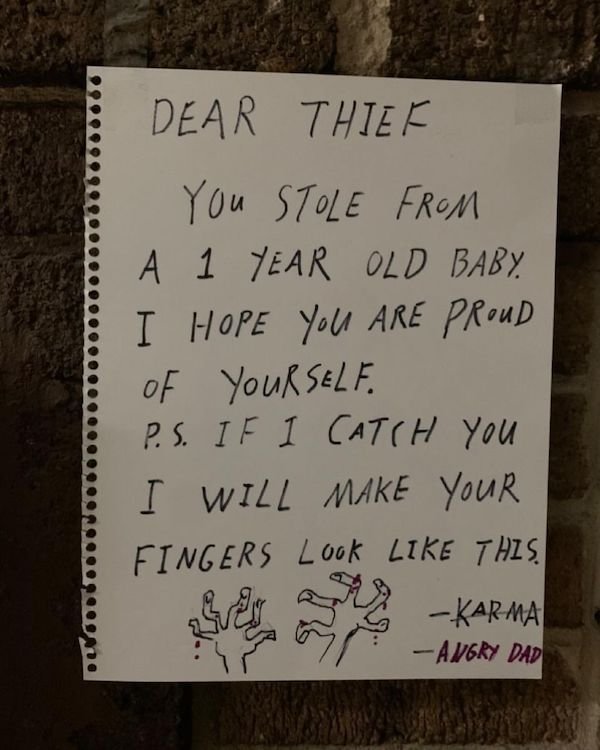 DEAR THIEF
YOU STOLE FROM
A 1 YEAR OLD BABY.
I HOPE YOU ARE PROUD
OF YOURSELF.
P.S. IF I CATCH YOU
I WILL MAKE YOUR
FINGERS LOOK LIKE THIS.
-KARMA
-ANGRY DAD